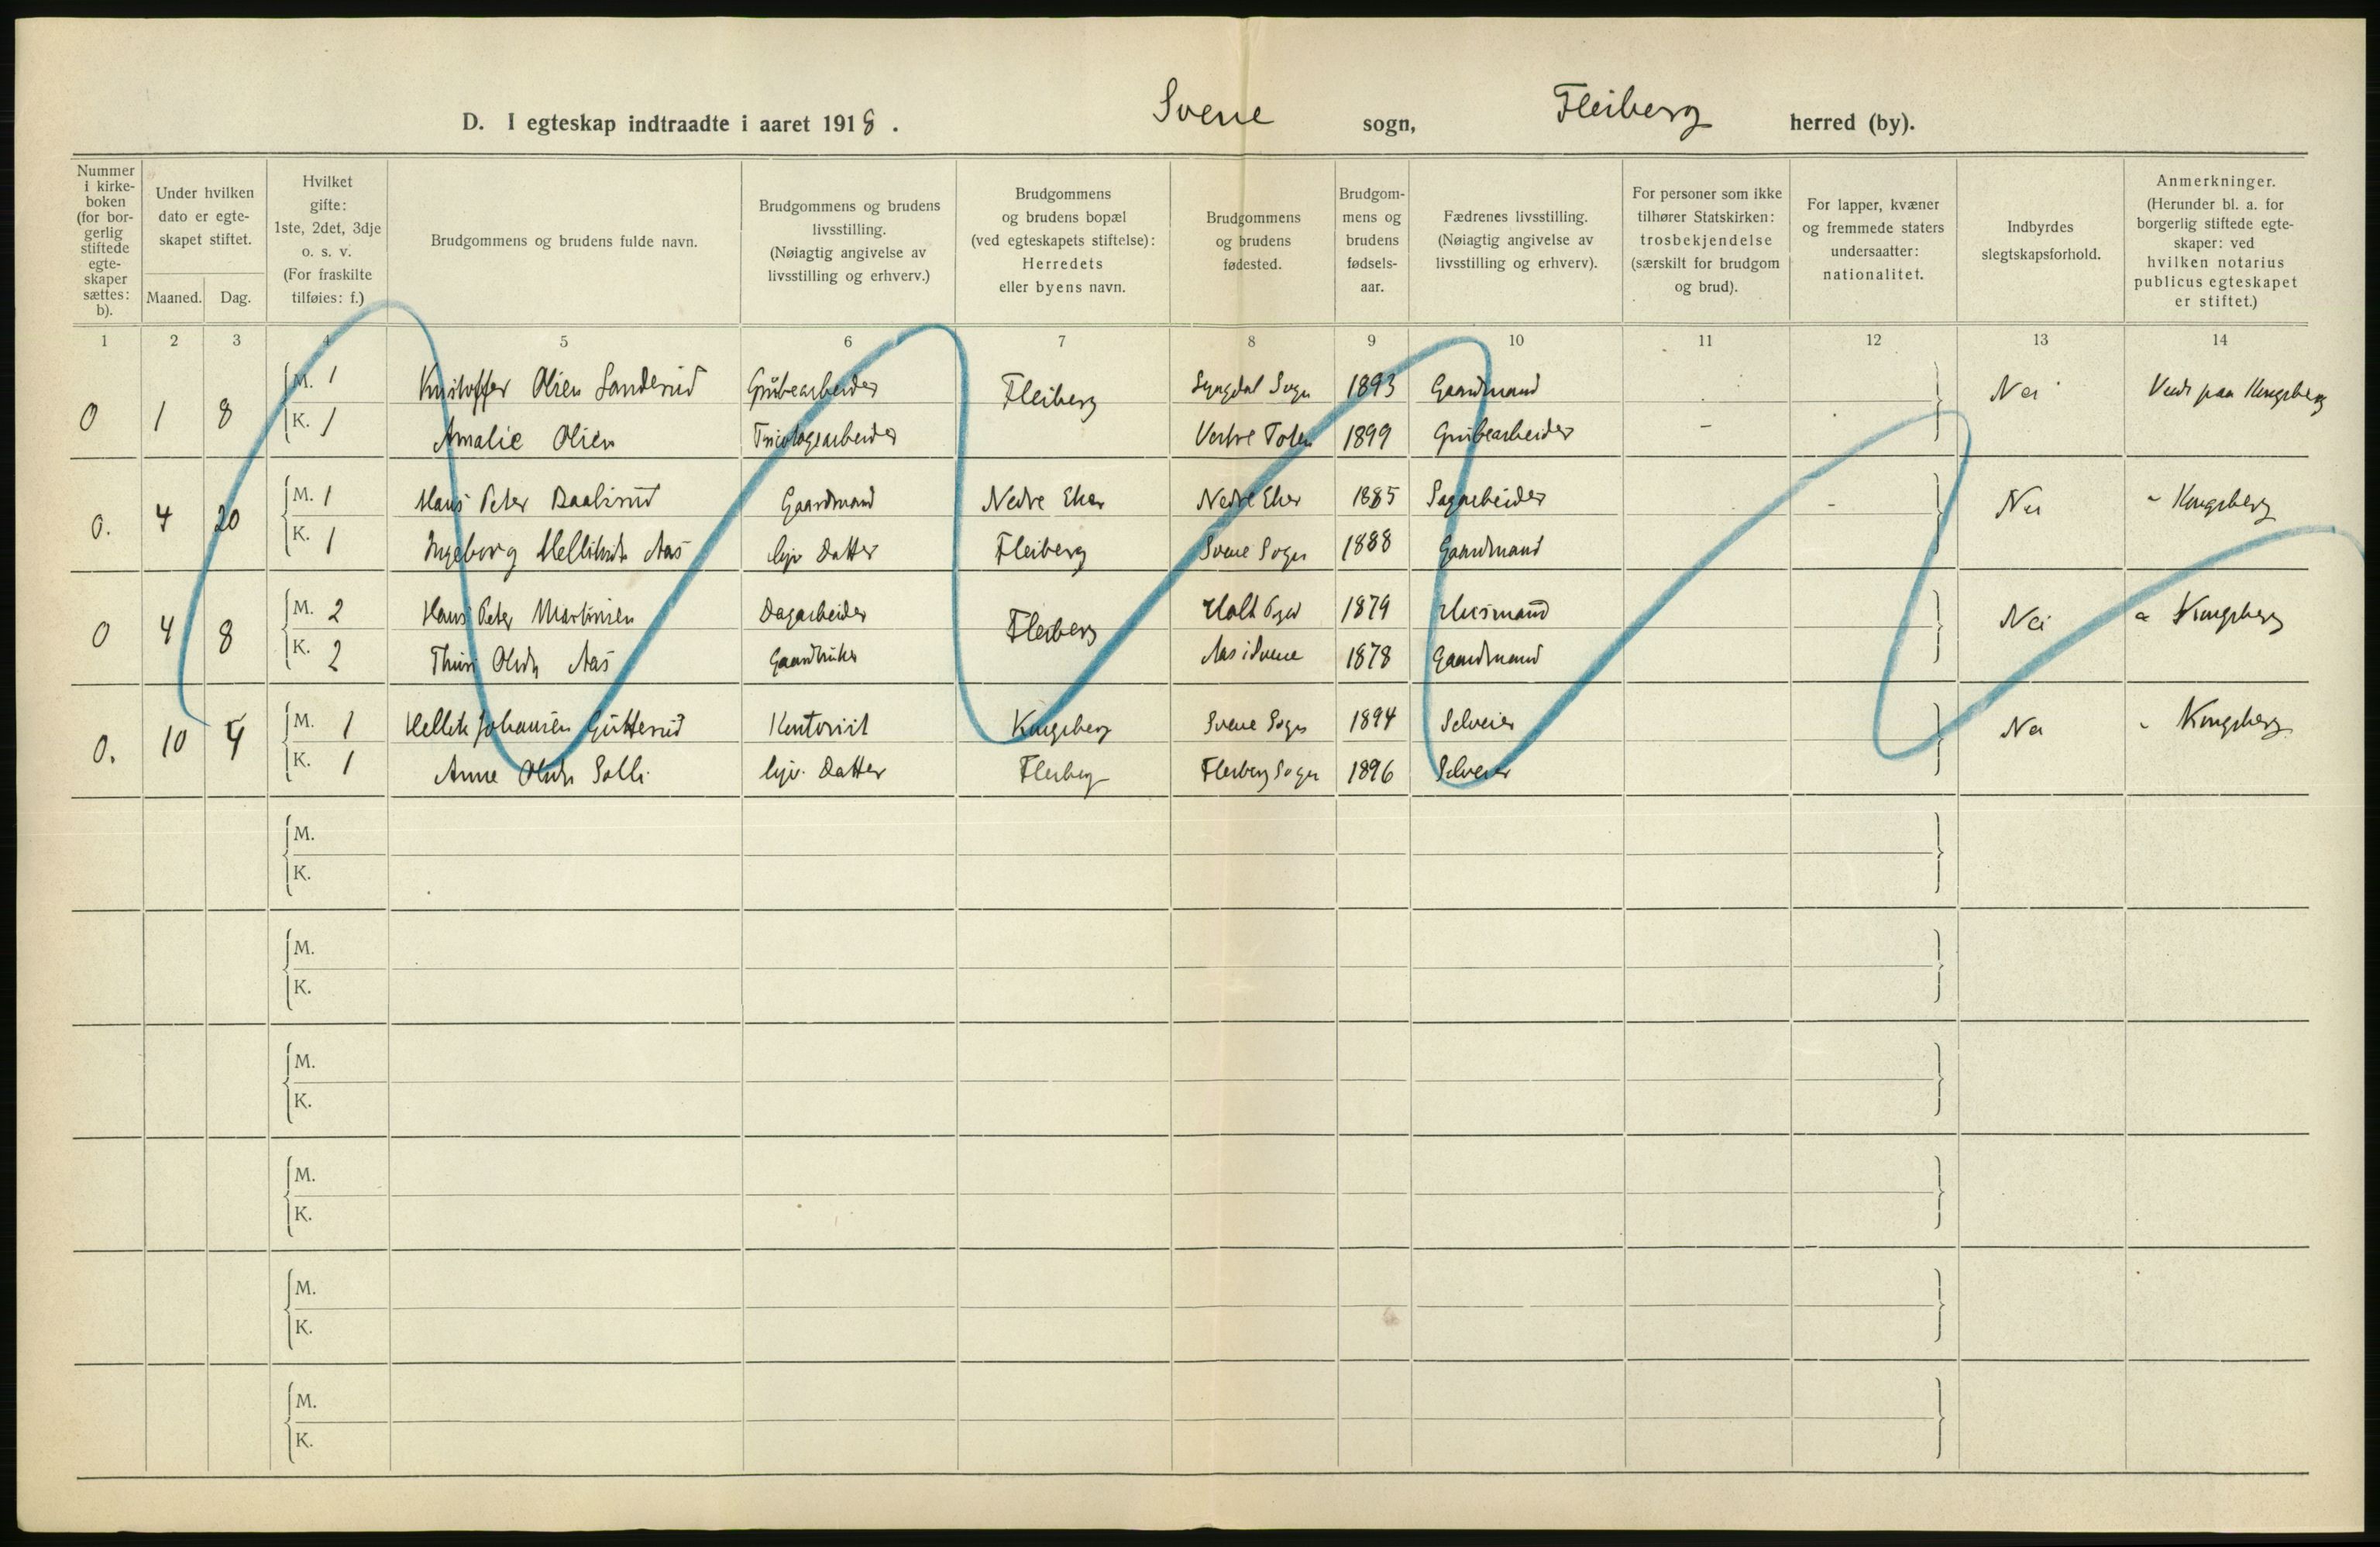 D. I egteskap indtraadte i aaret 1918. Svene sogn, Flesberg herred (by).
Nummer i kirke- boken (for bor- gerlig stiftede egte- skaper sættes: b).
Under hvilken dato er egte- skapet stiftet.
Maaned. Dag.
Hvilket gifte: 1ste, 2det, 3dje o. s. v. (For fraskilte tilføies: f.)
Brudgommens og brudens fulde navn.
Brudgommens og brudens livsstilling. (Nøiagtig angivelse av livsstilling og erhverv.)
Brudgommens og brudens bopæl (ved egteskapets stiftelse): Herredets eller byens navn.
Brudgommens og brudens fødested.
Brudgom- mens og brudens fødsels- aar.
Fædrenes livsstilling. (Nøiagtig angivelse av livsstilling og erhverv).
For personer som ikke tilhører Statskirken: trosbekjendelse (særskilt for brudgom og brud).
For lapper, kvæner og fremmede staters undersaatter: nationalitet.
Indbyrdes slegtskapsforhold.
Anmerkninger. (Herunder bl. a. for borgerlig stiftede egte- skaper: ved hvilken notarius publicus egteskapet er stiftet.)
1 2 3 4 5 6 7 8 9 10 11 12 13 14
0 1 8 M. 1 Kristoffer Olsen Sanderud Grubearbeider Flesberg Sogn 1893 Gaardmand Nei paa Kongsberg
K. 1 Amalie Olsen Tricotagearbeider Vestre Toten 1899 Grubearbeider
0. 4 20 M. 1 Hans Peter Gaardmand Nedre Eker Nedre Eker 1885 Sagarbeider Nei " Kongsberg
K. 1 Ingeborg Aas Datter Flesberg Svene Sogn 1888 Gaardmand
0 4 8 M. 2 Hans Peter Martinsen Dagarbeider Flesberg Holt 1879 Husmand Nei " Kongsberg
K. 2 Aas Gaardbruker Aas i Svene 1878 Gaardmand
0. 10 M. 1 Johansen Gutterud Kontorist Kongsberg Svene Sogn 1894 Selveier Nei " Kongsberg
K. 1 Anne Datter Flesberg Flesberg Sogn 1896 Selveier
M.
K.
M.
K.
M.
K.
M.
K.
M.
K.
M.
K.